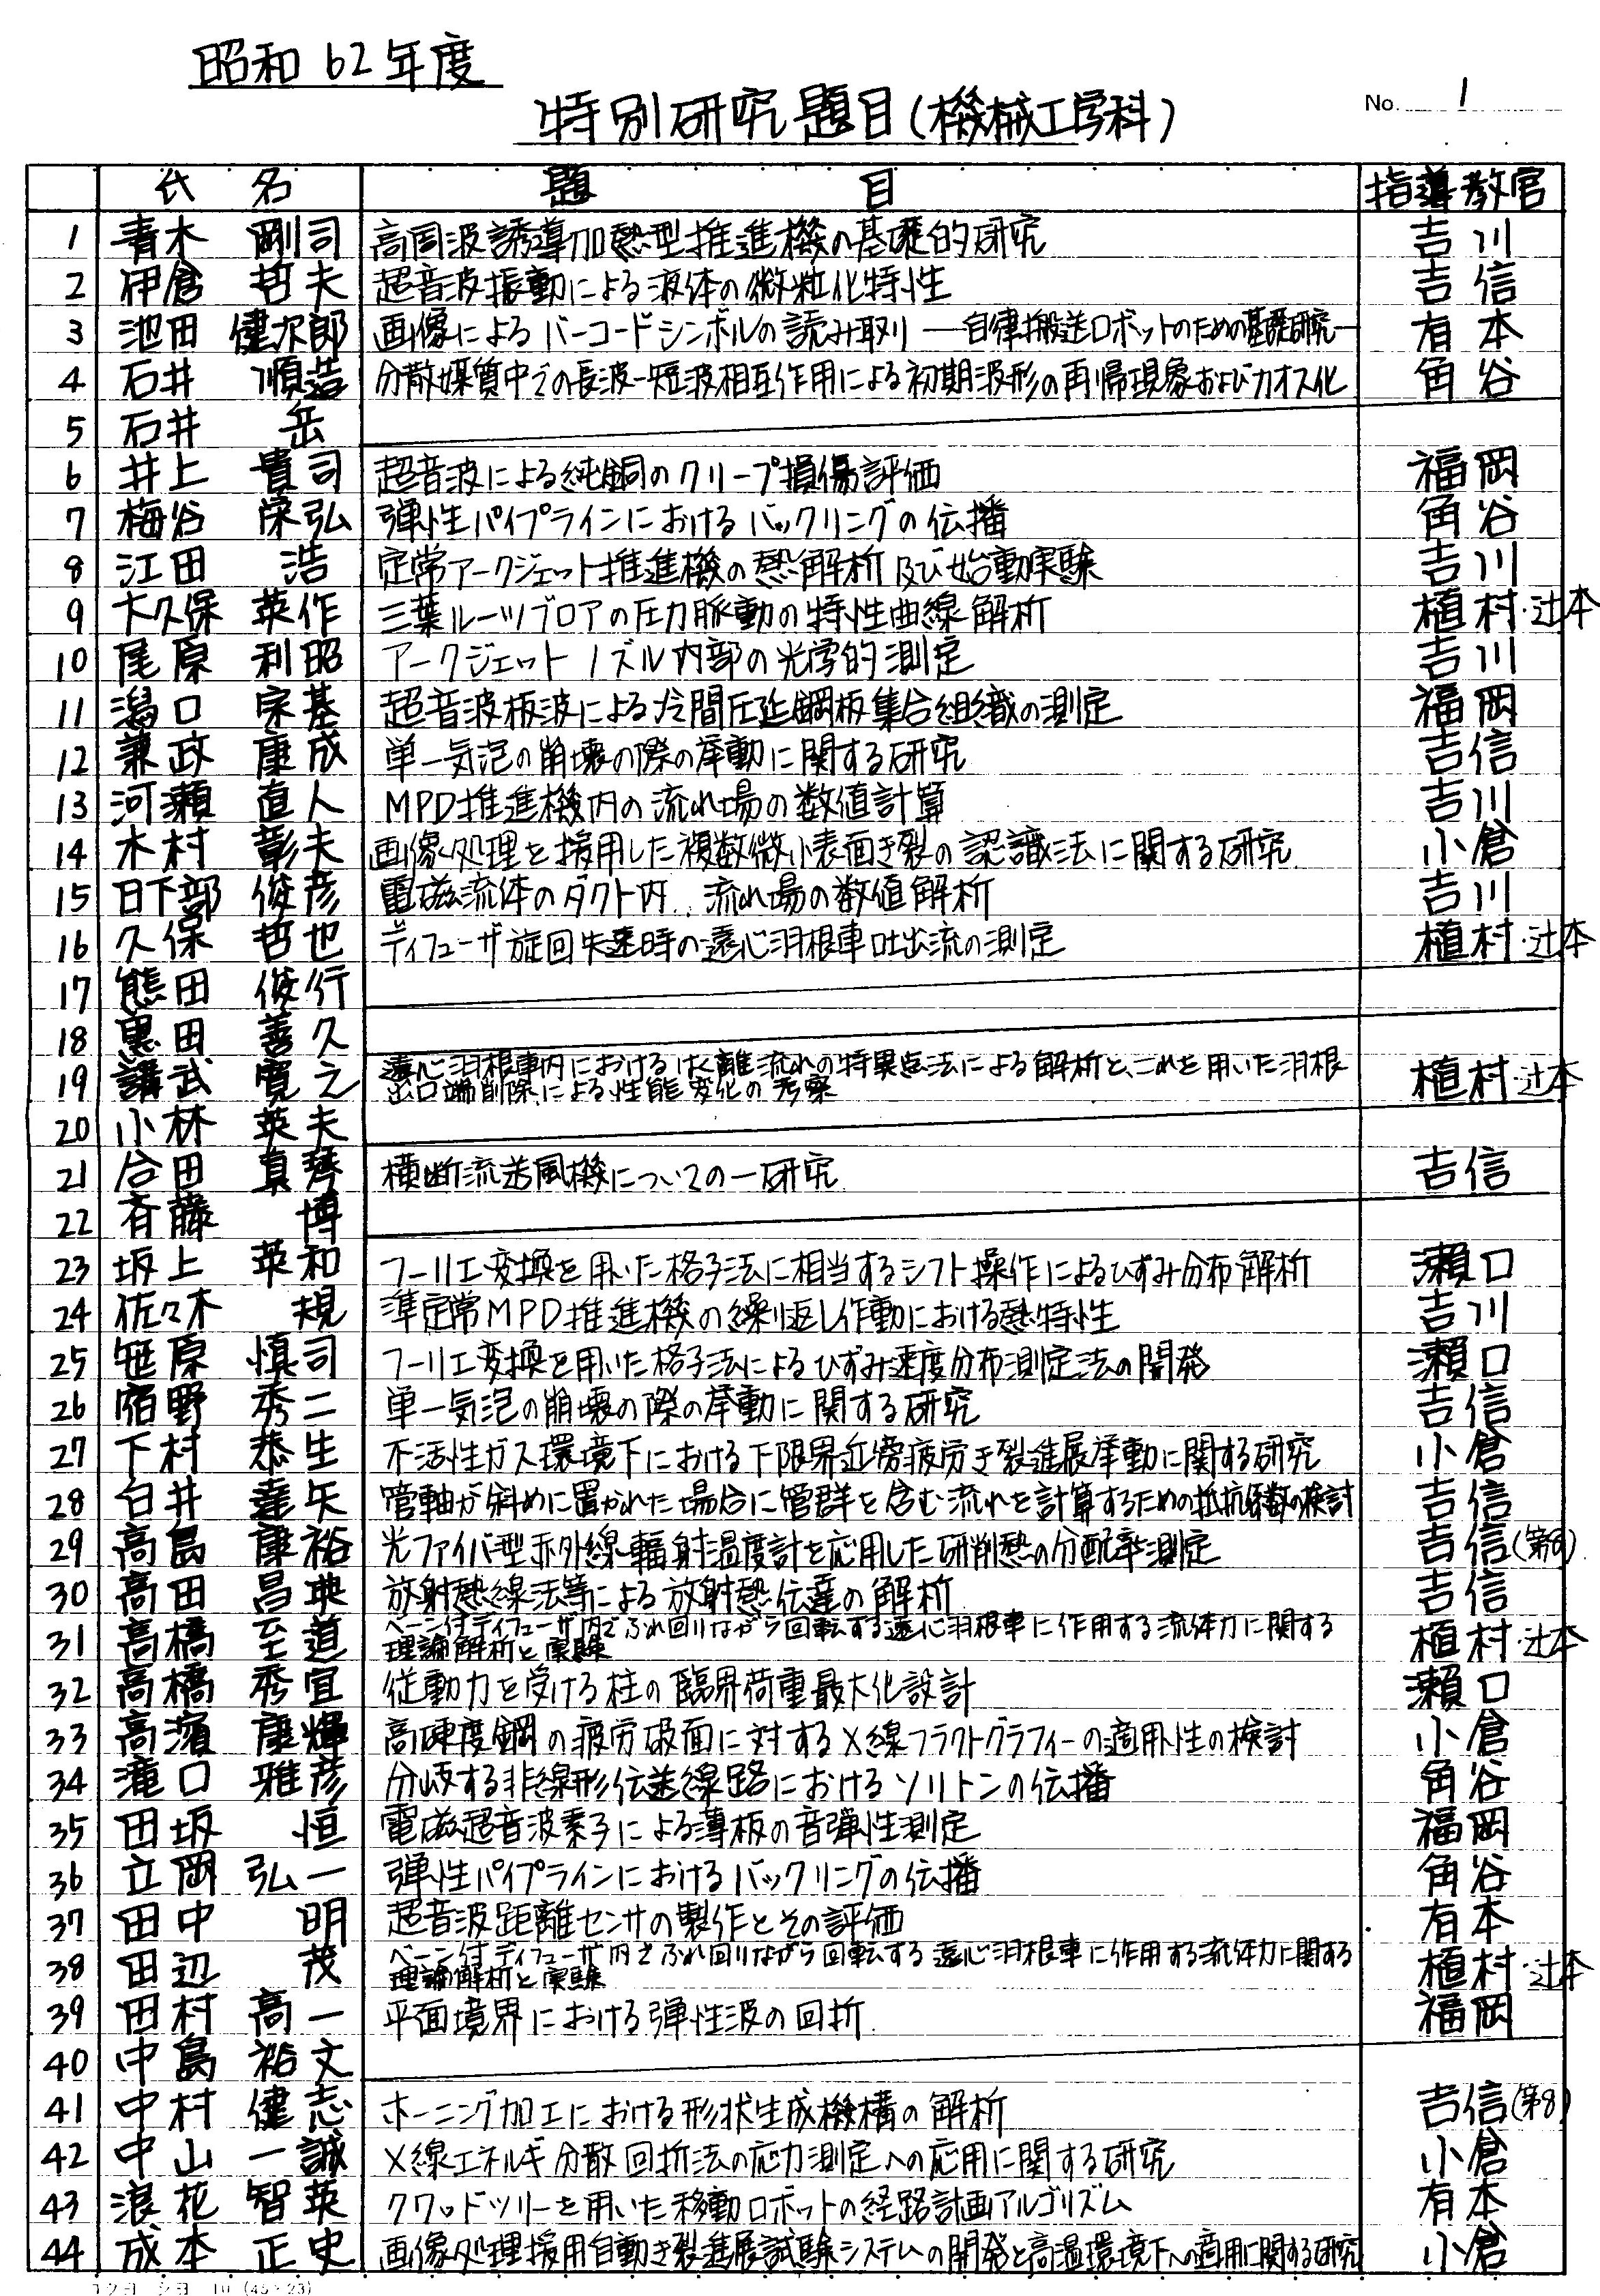 昭和62年度
特別研究題目(機械工学科)
No. 1
氏 名 題 目 指導教官
1 青木 剛司 高周波誘導加熱型推進機の基礎的研究 吉川
2 伊倉 哲夫 超音波振動による液体の微粒化特性 吉信
3 池田 健次郎 画像によるバーコードシンボルの読み取り ―自律搬送ロボットのための基礎研究― 有本
4 石井 順造 分散媒質中での長波-短波相互作用による初期波形の再帰現象およびカオス化 角谷
5 石井 岳
6 井上 貴司 超音波による純銅のクリープ損傷評価 福岡
7 梅谷 栄弘 弾性パイプラインにおけるバックリングの伝播 角谷
8 江田 浩 定常アークジェット推進機の熱解析及び始動実験 吉川
9 大久保 英作 三葉ルーツブロアの圧力脈動の特性曲線解析 植村・辻本
10 尾原 利昭 アークジェットノズル内部の光学的測定 吉川
11 潟口 宗基 超音波板波による冷間圧延鋼板集合組織の測定 福岡
12 兼政 康成 単一気泡の崩壊の際の挙動に関する研究 吉信
13 河瀬 直人 MPD推進機内の流れ場の数値計算 吉川
14 木村 彰夫 画像処理を援用した複数微小表面き裂の認識法に関する研究 小倉
15 日下部 俊彦 電磁流体のダクト内流れ場の数値解析 吉川
16 久保 哲也 ディフューザ旋回失速時の遠心羽根車吐出流の測定 植村・辻本
17 熊田 俊行
18 黒田 善久
19 講武 寛之 遠心羽根車内におけるはく離流れの特異点法による解析と、これを用いた羽根
出口端削除による性能変化の考察 植村・辻本
20 小林 英夫
21 合田 真琴 横断流送風機についての一研究 吉信
22 斉藤 博
23 坂上 英和 フーリエ変換を用いた格子法に相当するシフト操作によるひずみ分布解析 瀬口
24 佐々木 規 準定常MPD推進機の繰り返し作動における熱特性 吉川
25 笹原 慎司 フーリエ変換を用いた格子法によるひずみ速度分布測定法の開発 瀬口
26 宿野 秀二 単一気泡の崩壊の際の挙動に関する研究 吉信
27 下村 恭生 不活性ガス環境下における下限界近傍疲労き裂進展挙動に関する研究 小倉
28 白井 達矢 管軸が斜めに置かれた場合に管群を含む流れを計算するための抵抗係数の検討 吉信
29 高島 康裕 光ファイバ型赤外線輻射温度計を応用した研削熱の分配率測定 吉信(第8)
30 高田 昌典 放射熱線法等による放射熱伝達の解析 吉信
31 高橋 至道 ベーン付ディフューザ内でふれ回りながら回転する遠心羽根車に作用する流体力に関する
理論解析と実験 植村・辻本
32 高橋 秀宜 従動力を受ける柱の臨界荷重最大化設計 瀬口
33 高濱 康輝 高硬度鋼の疲労破面に対するX線フラクトグラフィーの適用性の検討 小倉
34 滝口 雅彦 分岐する非線形伝送線路におけるソリトンの伝播 角谷
35 田坂 恒 電磁超音波素子による薄板の音弾性測定 福岡
36 立岡 弘一 弾性パイプラインにおけるバックリングの伝播 角谷
37 田中 明 超音波距離センサの製作とその評価 有本
38 田辺 茂 ベーン付ディフューザ内でふれ回りながら回転する遠心羽根車に作用する流体力に関する
理論解析と実験 植村・辻本
39 田村 高一 平面境界における弾性波の回折 福岡
40 中島 裕文
41 中村 健志 ホーニング加工における形状生成機構の解析 吉信(第8)
42 中山 一誠 X線エネルギ分散回折法の応力測定への応用に関する研究 小倉
43 浪花 智英 クワッドツリーを用いた移動ロボットの経路計画アルゴリズム 有本
44 成本 正史 画像処理援用自動き裂進展試験システムの開発と高温環境下への適用に関する研究 小倉